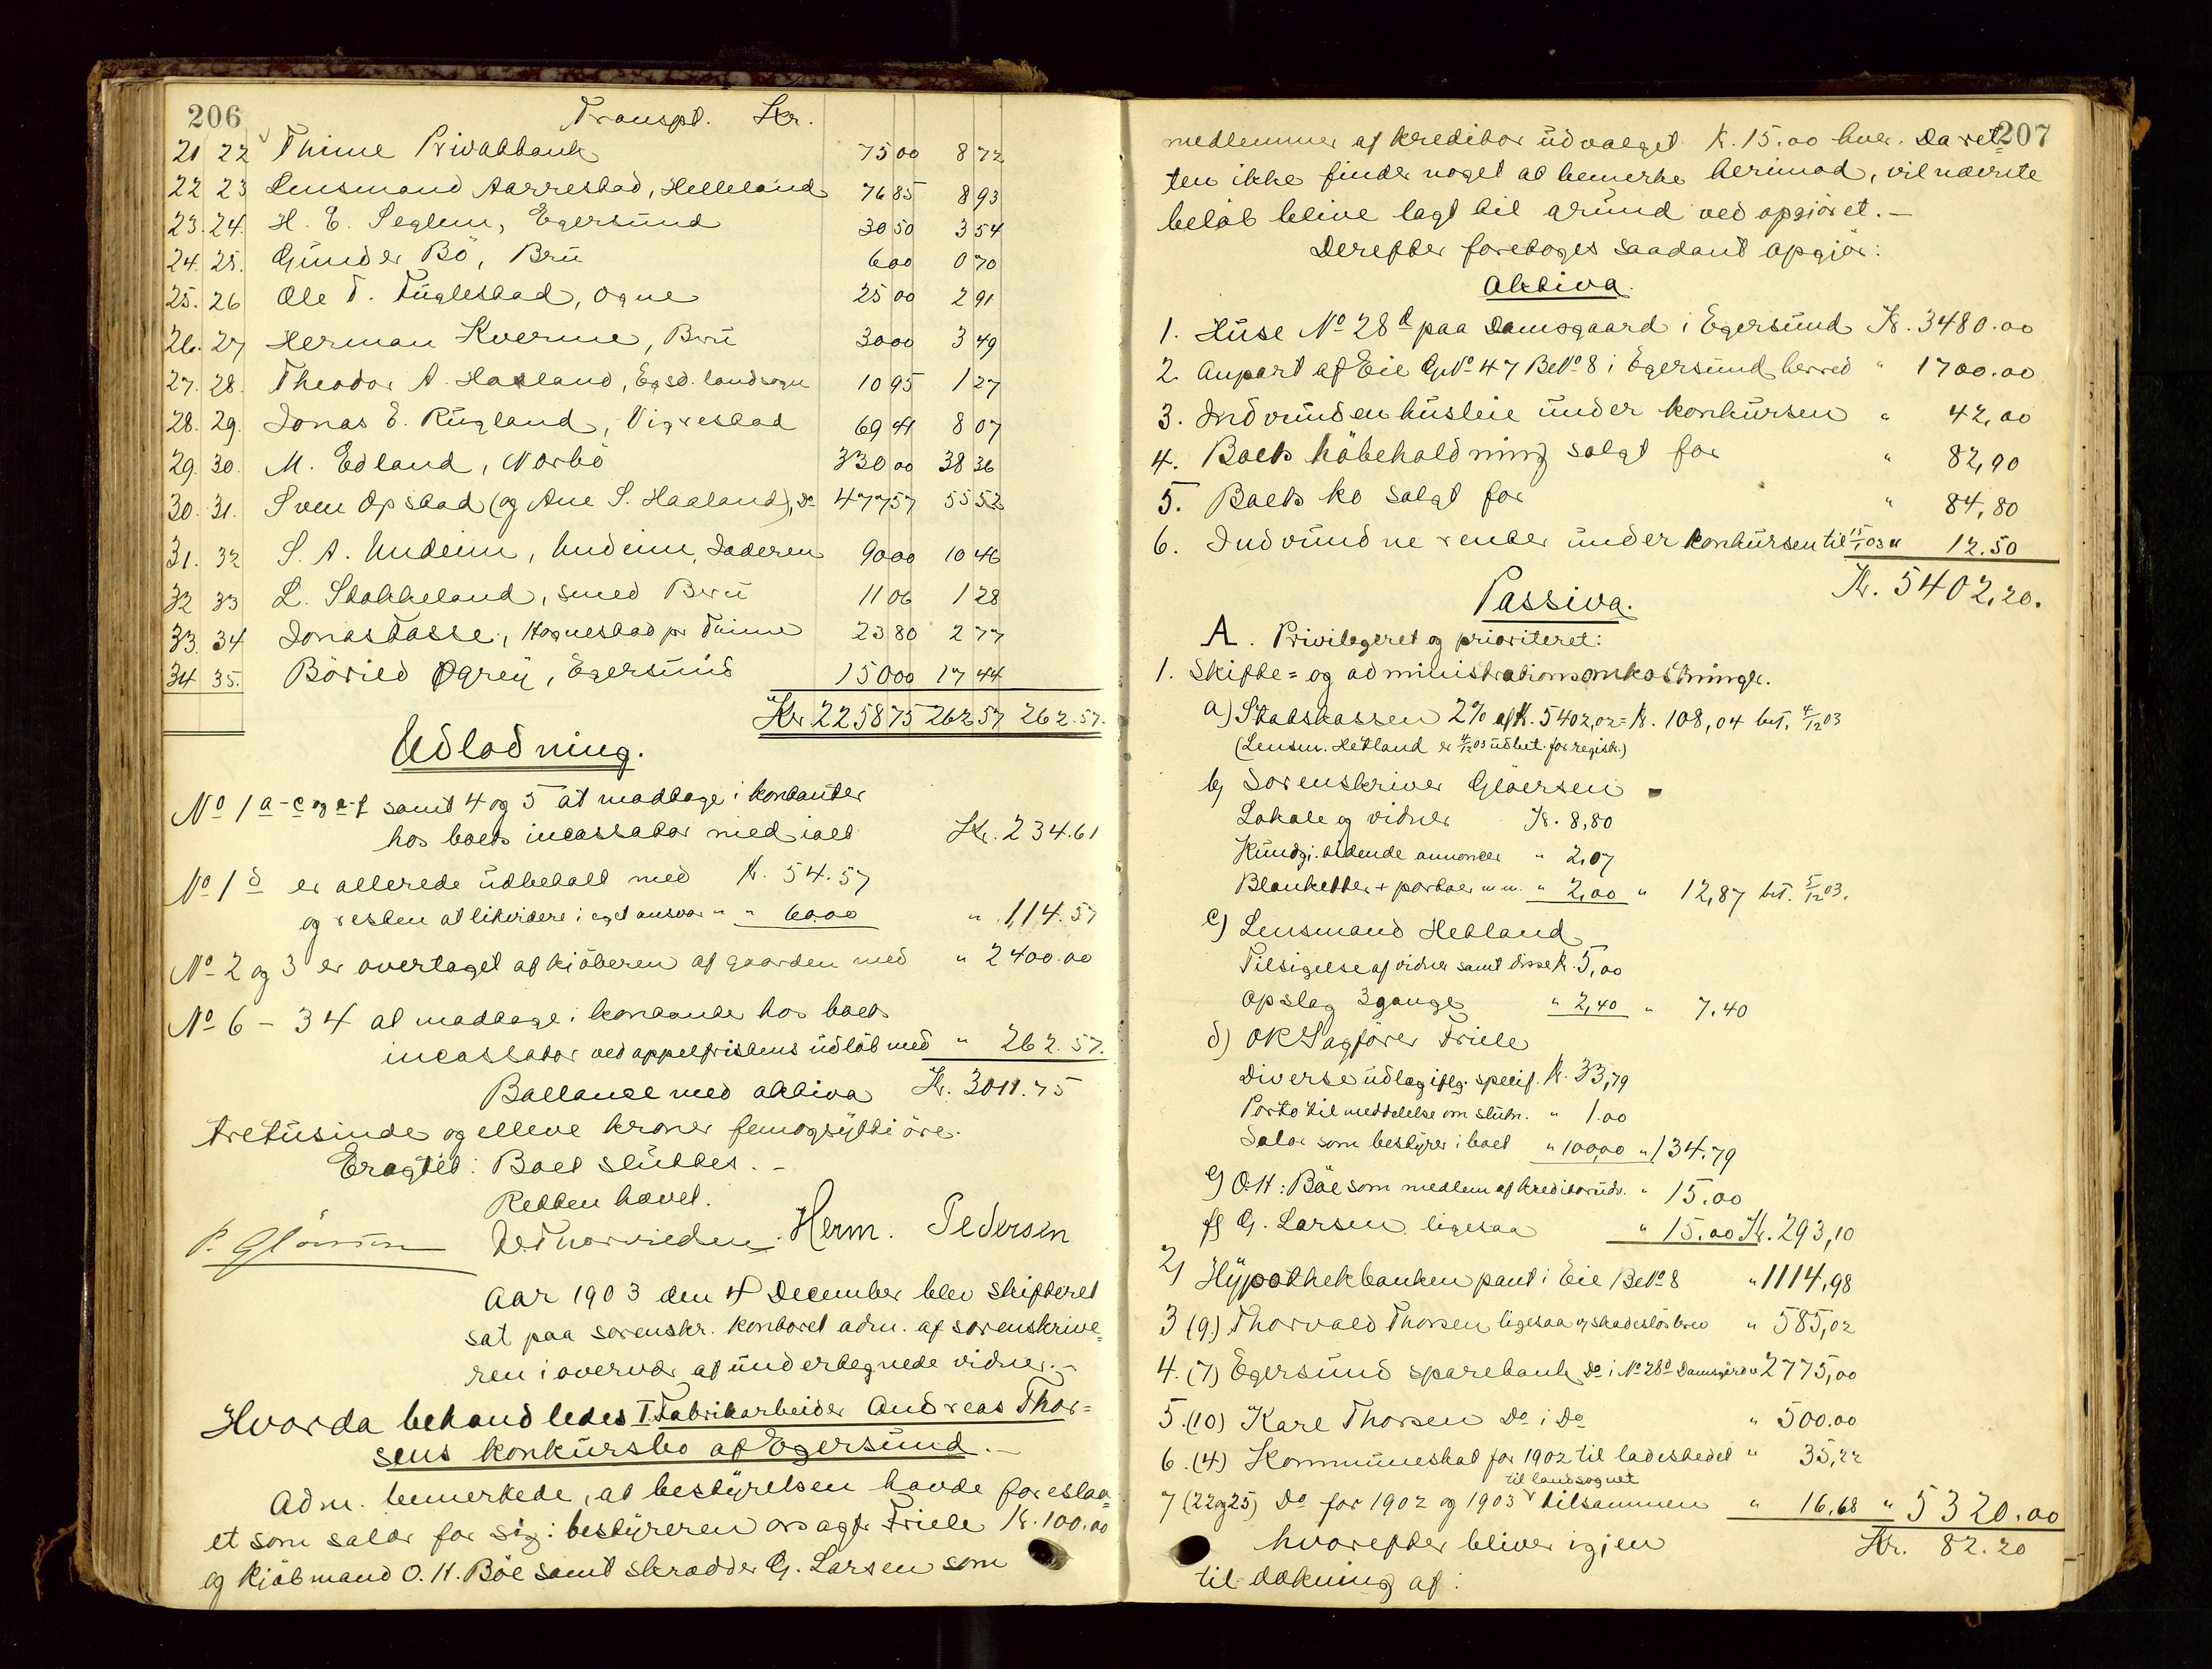 206
Transpt. Kr.
21 22 Thime Privatbank 75 00 8 72
22 23 Lensmand Aarrestad, Helleland 76 85 8 93
23. 24. H. E. Seglem, Egersund 30 50 3 54
24. 25. Gunder Bö, Bru 6 00 0 70
25. 26 Ole T. Fuglestad, Ogne 25 00 2 91
26. 27 Herman Kverme, Bru 30 00 3 49
27. 28. Theodor A. Haaland, Egsd. landsogn 10 95 1 27
28. 29. Jonas E. Rugland, Vigrestad 69 41 8 07
29. 30. M. Edland, Norbö 330 00 38 36
30. 31. Sven Opstad (og Ane S. Haaland), Do 477 57 55 52
31. 32 S. A. Undeim, Undeim, Jaderen 90 00 10 46
32 33 L. Stokkeland, smed Bru 11 06 1 28
33. 34 Jonas Tasse, Hognestad pr Thime 23 80 2 77
34 35. Böried Øgrey, Egersund 150 00 17 44
Kr 2258 75 262 57 262.57.
Udlodning.
No 1 a-c og e-f samt 4 og 5 at modtage i kontanter
hos boets incassator med ialt Kr. 234.61
No 1 d er allerede udbetalt med K. 54.57
og resten at likvidere i eget ansvar " " 60.00 " 114.57
No 2 og 3 er overtaget af kjöberen af gaarden med " 2400.00
No 6 - 34 at modtage i kontanter hos boets
incassator ved appelfristens udlöb med " 262.57.
Ballance med aktiva Kr. 3011.75
tretusinde og elleve kroner femogsytti öre.
Eragtet: Boet sluttes. -
Retten hævet.
P. Gläersen Herm. Pedersen
Aar 1903 den 4 December blev skifteret
sat paa sorenskr. kontoret adm. af sorenskrive=
ren i overvær af undertegnede vidner. -
Hvorda behandledes I. Fabrikarbeider Andreas Thor=
sens konkursbo af Egersund. -
Adm. bemerkede, at bestyrelsen havde foreslaa=
et som salær for sig: bestyreren orsagf. Friele K. 100.00
og Kjöbmand O. H. Böe samt skrædder G. Larsen som
207
medlemmer af kreditorudvalget K. 15.00 hver. Da ret=
ten ikke finder noget at bemerke herimod, vil nævnte
belöb blive lagt til grund ved opgjöret. -
Derefter foretoges saadant opgjör:
Aktiva.
1. Huse No 28 d paa Damsgaard i Egersund Kr. 3480.00
2. Anpart af Eie GNo 47 BNo 8 i Egersund herred " 1700.00
3. Indvunden husleie under konkursen " 42,00
4. Boets höbeholdning solgt for " 82,90
5. Boets ko solgt for " 84,80
6. Indvundne renter under konkursen til 15/1 03 " 12.50
Kr. 5402,20.
Passiva.
A. Privilegeret og prioriteret:
1. Skifte= og administrationsomkostninger.
a) Statskassen 2% af K. 5402,02 = K. 108,04 bet. 4/12 03
(Lensm. Hetland er 4/12 03 udbet. for registr.)
b) Sorenskriver Gläersen
Lokale og vidner Kr. 8,80
Kundgj.tidende annoncer " 2,07
Blanketter + portoer m.m. " 2,00 " 12,87 bet. 5/12 03.
c) Lensmand Hetland
Tilsigelse af vidner samt disse K. 5,00
Opslag 3 gange " 2,40 " 7.40
d) ORSagförer Friele
Diverse udlæg iflg. specif. K. 33,79
Porto til meddelelse om slutn. " 1.00
Salær som bestyrer i boet " 100,00 " 134.79
e) O. H. Böe som medlem af kreditorudv. " 15.00
f) G. Larsen ligesaa " 15.00 Kr. 293,10
2) Hypothekbanken pant i Eie BNo 8 " 1114,98
3 (9) Thorvald Thorsen ligesaa og skadeslösbrev " 585,02
4. (7) Egersund sparebank Do i No 28 d Damsgård " 2775,00
5. (10) Karl Thorsen Do i Do " 500.00
6. (4) Kommuneskat for 1902 til ladestedet " 35,22
til landsognet
7 (22 og 25) Do for 1902 og 1903 tilsammen " 16.68 " 5320.00
hvorefter bliver igjen Kr. 82.20
til dækning af: